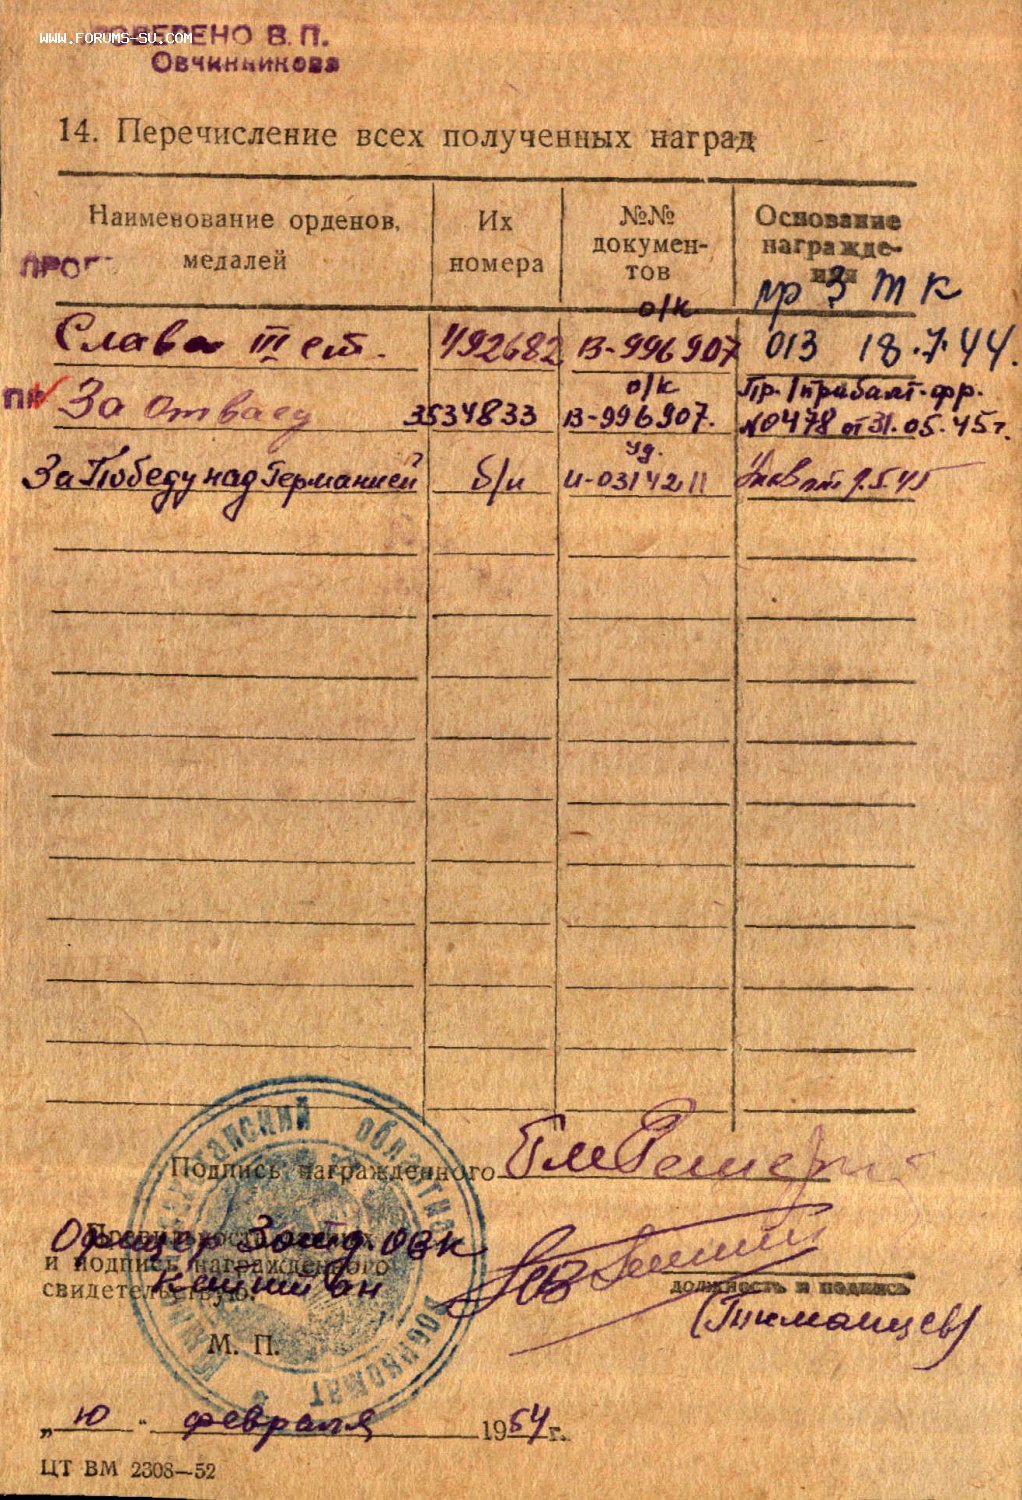 www.forums-su.com
ПРОВЕРЕНО В. П.
Овчинникова
14. Перечисление всех полученных наград
Наименование орденов, медалей
Их номера
№№ докумен-
тов
Основание
награжде-
ния
пр 3 ТК
Слава III ст. 492682 о/к В-996907 013 18.7.44.
За отвагу 3534833 о/к В-996907. Пр. 1 прибалт. фр.
№0478 от 31.05.45г.
За Победу над Германией б/н уд. И-0314211 Указ от 9.5.45
Подпись награжденного
Правильность
и подпись награжденного
свидетельствую:
Офицер 3 отд. ОВК
Капитан
должность и подпись
(Тикманцев)
М. П.
областной
военкомат
„10" февраля 1954 г.
ЦТ ВМ 2308—52